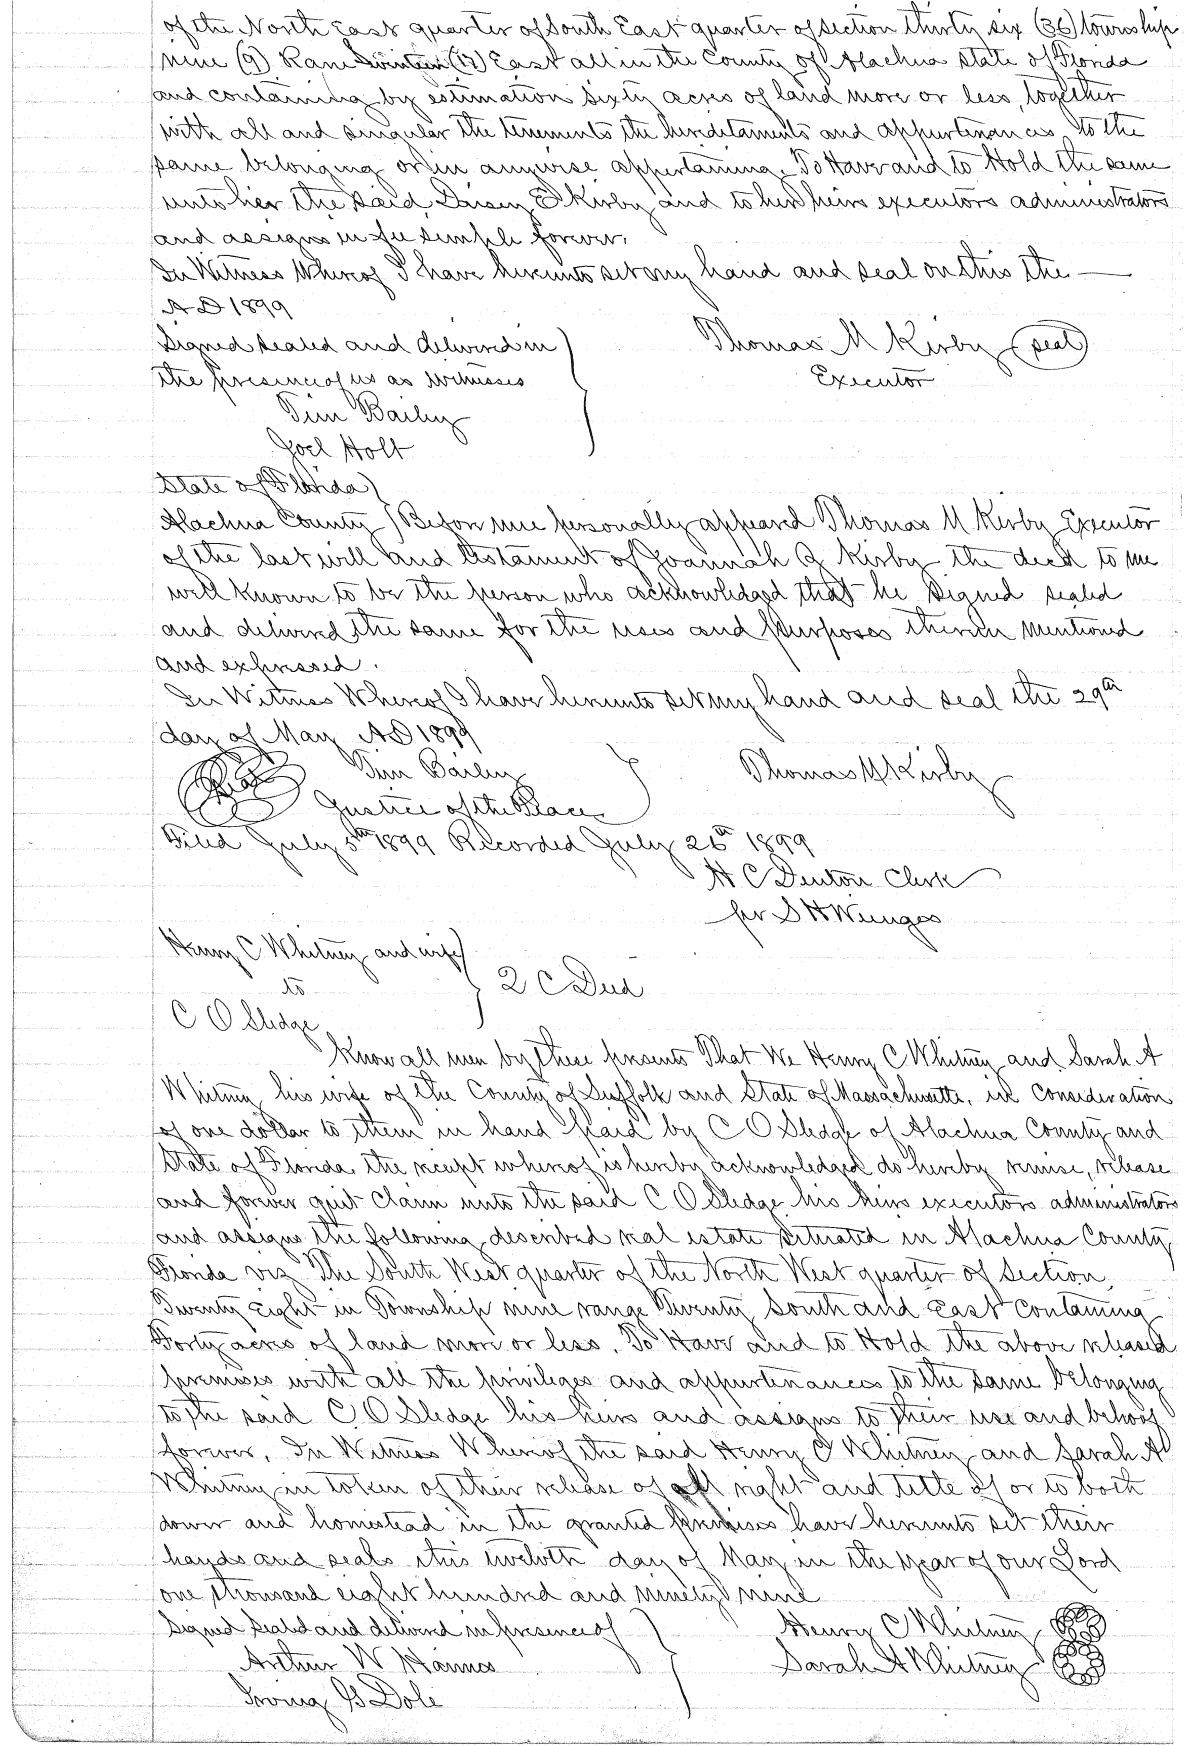 of the North East quarter of South East quarter of section thirty six (36) township
nine (9) Rane (17) East all in the County of Alachua State of Florida
and containing by estimation sixty acres of land more or less, together
with all and singular the tenements the hereditaments and appurtenances to the
same belonging or in anywise appertaining. To Have and to Hold the same
unto her the said Daisey E Kirby and to her heirs executors administrators
and assigns in fee simple forever.
In Witness Whereof I have hereunto set my hand and seal on this the —
A D 1899
Signed sealed and delivered in
the presence of us as witnesses
Tim Bailey
Joel Holt
Thomas M Kirby (seal)
Executor
State of Florida )
Alachua County ) Before me personally appeared Thomas M Kirby Executor
of the last will and testament of Joannah Kirby the decd to me
well known to be the person who acknowledged that he signed sealed
and delivered the same for the uses and purposes therein mentioned
and expressed.
In Witness Whereof I have hereunto set my hand and seal the 29th
day of May A D 1899
(Seal) Tim Bailey Thomas M Kirby
Justice of the Peace
Filed July 5th 1899 Recorded July 26th 1899
H C Denton Clerk
per S H Wienges
Henry C Whitney and wife
to
C O Sledge
2 C Deed
Know all men by these presents That We Henry C Whitney and Sarah A
Whitney his wife of the County of Suffolk and State of Massachusetts, in consideration
of one dollar to them in hand paid by C O Sledge of Alachua County and
State of Florida the receipt whereof is hereby acknowledged do hereby remise, release
and forever quit claim unto the said C O Sledge his heirs executors administrators
and assigns the following described real estate situated in Alachua County
Florida viz The South West quarter of the North West quarter of Section
Twenty Eight in Township nine range Twenty South and East containing
Forty acres of land more or less. To Have and to Hold the above released
premises with all the privileges and appurtenances to the same belonging
to the said C O Sledge his heirs and assigns to their use and behoof
forever, In Witness Whereof the said Henry C Whitney and Sarah A
Whitney in token of their release of all right and title of or to both
dower and homestead in the granted premises have hereunto set their
hands and seals this twelvth day of May in the year of our Lord
one thousand eight hundred and ninety nine
Signed Sealed and delivered in presence of
Arthur W Haines
Irving G Dole
Henry C Whitney
Sarah A Whitney